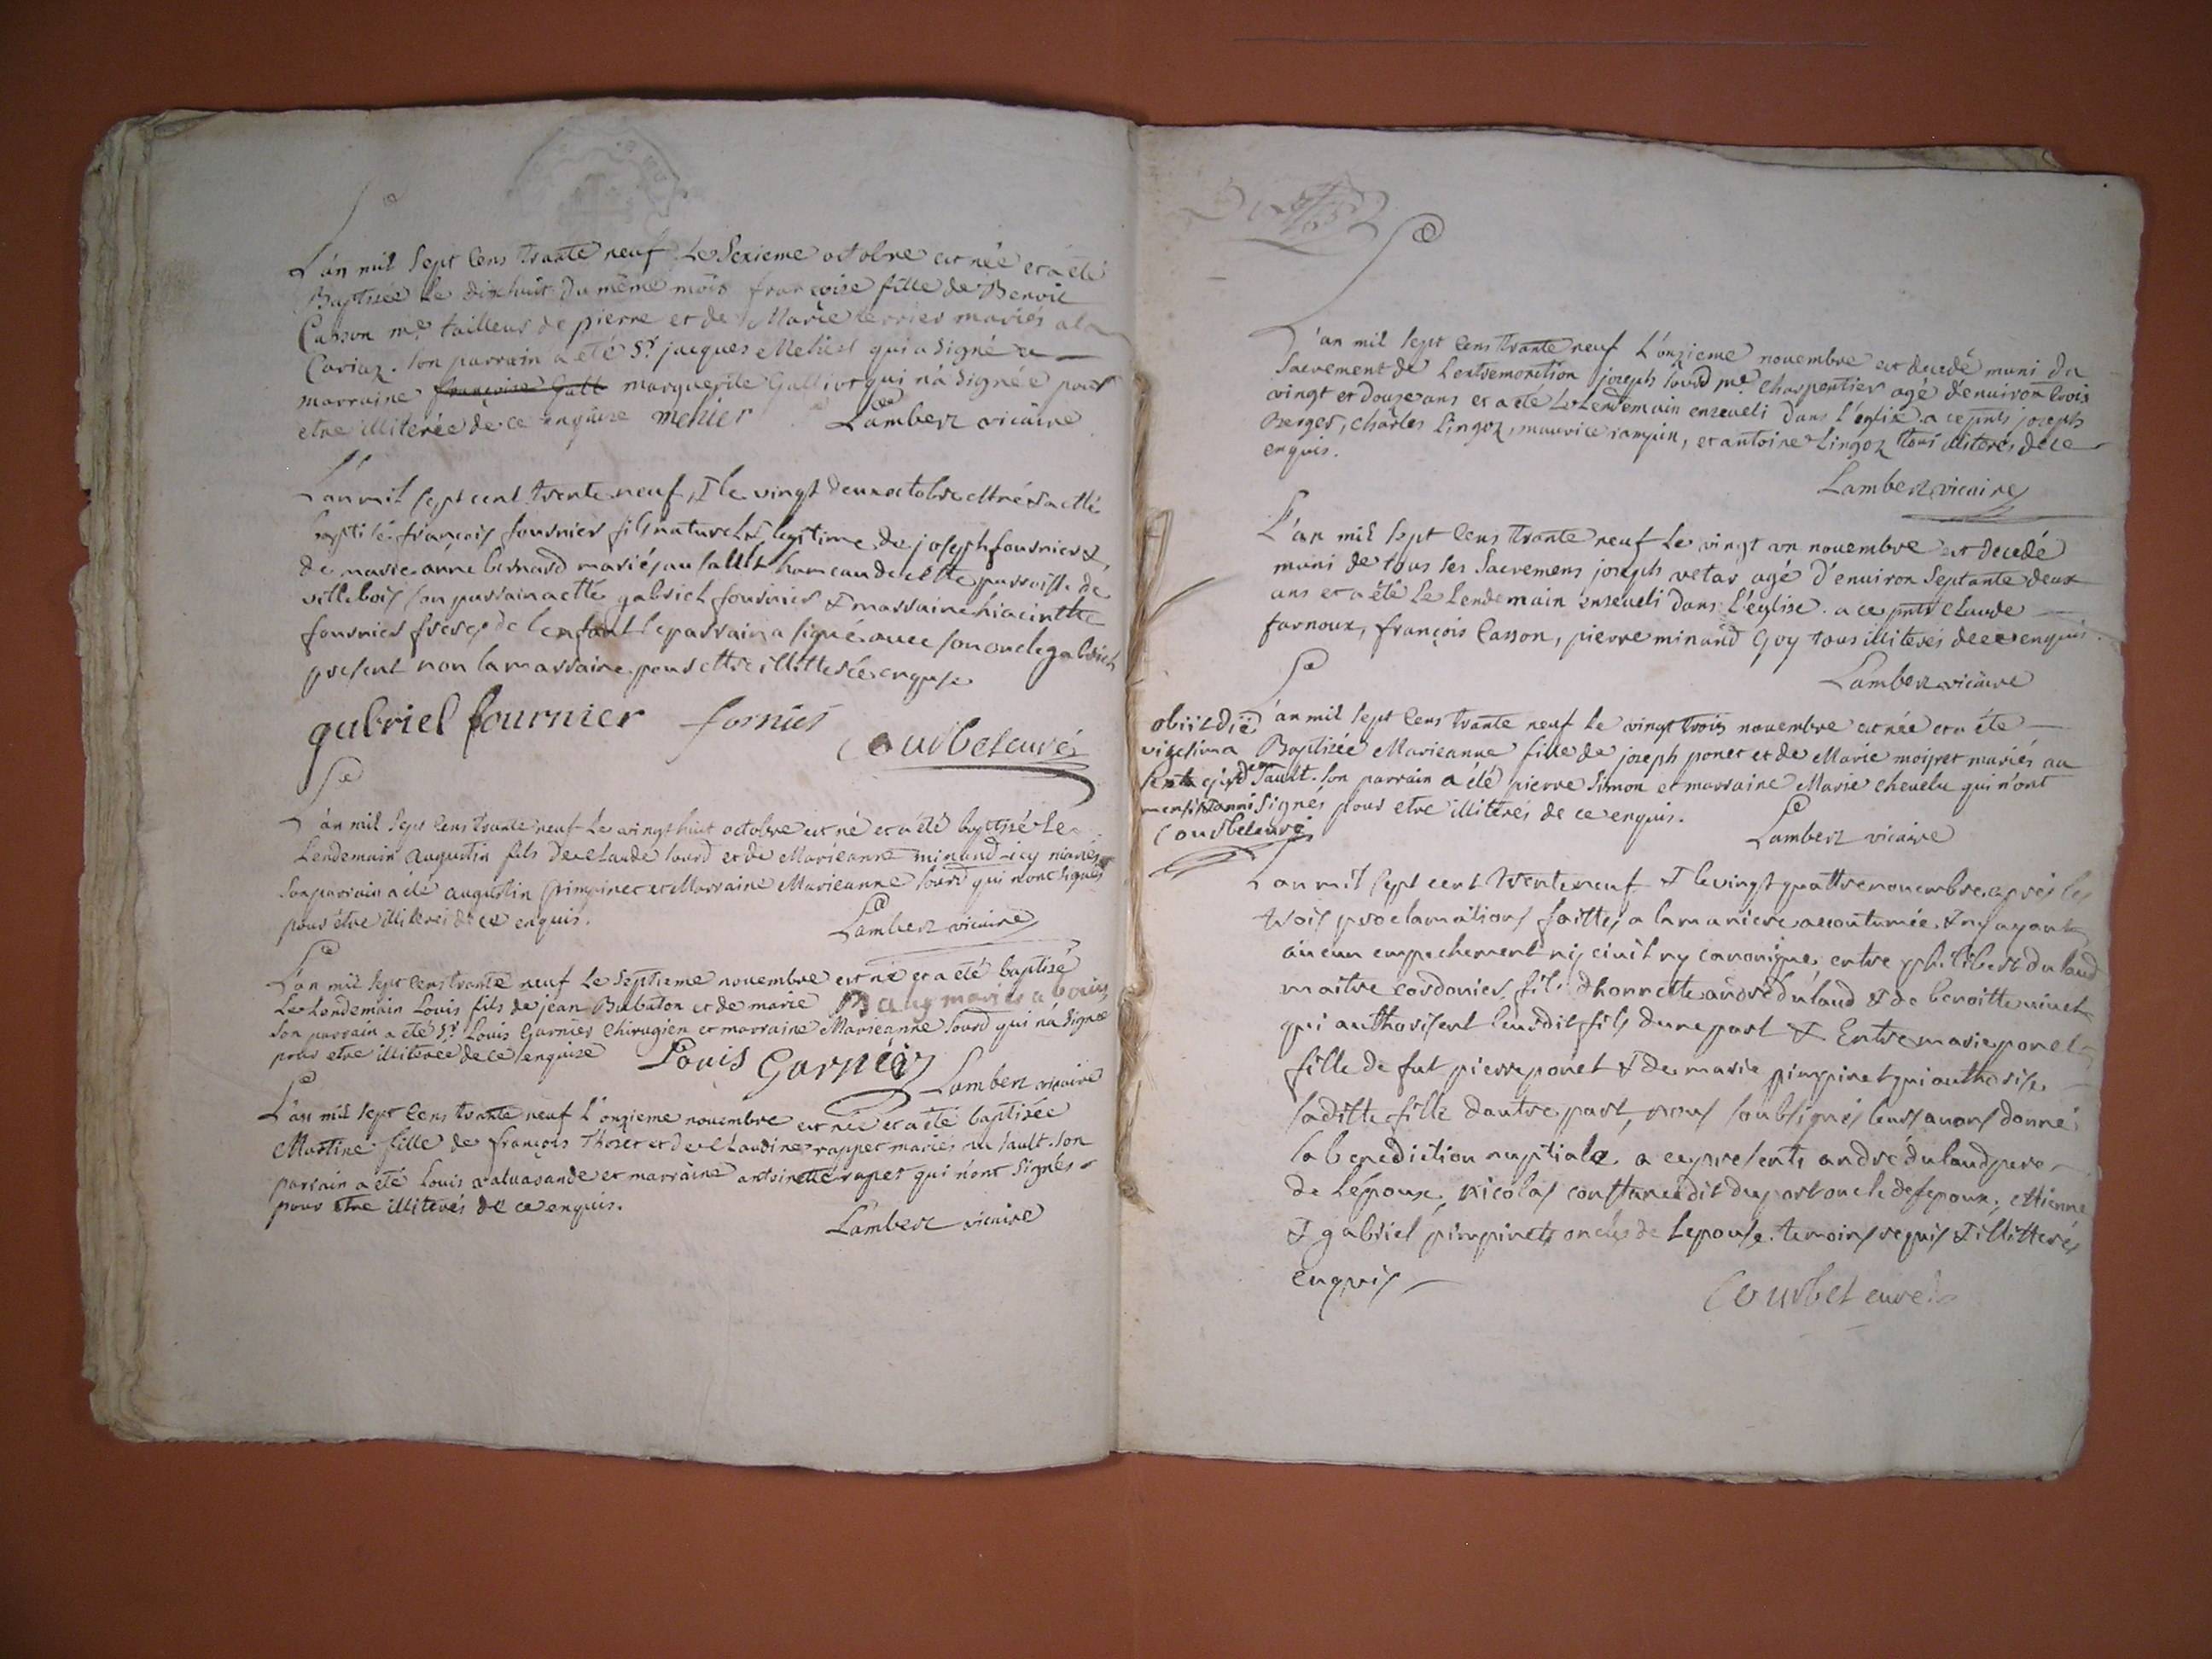 L'an mil sept cens trante neuf Le Sezieme octobre est née et a été
Baptisée Le dixhuit du même mois françoise fille de Benoit
Casson me tailleur de pierre et de Marie terrier mariés a la
Cariaz. Son parrain a été Sr jacques Mehier qui a signé et
marraine françoise Gall marguerite Galliot qui n'a signée pour
etre illiterée de ce enquise mehier Lambert vicaire
L'an mil sept cent trente neuf, & le vingt deux octobre est né & a etté
baptisé françois fournier fils naturel & legitime de joseph fournier &
de marie anne bernard mariés au sault hameau de cette parroisse de
villebois son parrain a etté gabriel fournier & marraine hiacinthe
fournier freres de l'enfant le parrain a signé avec son oncle gabriel
present non la marraine pour ettre illitterée enquise
gabriel fournier fornier
Courbet curé
L'an mil sept cens trante neuf Le vingt huit octobre est né et a été baptisé Le
Lendemain augustin fils de claude sourd et de Marieanne minand icy mariés
Son parrain a été augustin pimpinet et Marraine Marieanne sourd qui n'ont signés
pour être illiterés de ce enquis. Lambert vicaire
L'an mil sept cens trante neuf Le septieme novembre est né et a été baptisé
Le Landemain Louis fils de jean Babaton et de marie Baug mariés a bouis
Son parrain a été Sr Louis Garnier Chirugien et marraine Marieanne sourd qui n'a signée
pour etre illiterée de ce enquise Louis Garnier Lambert vicaire
L'an mil sept cens trante neuf L'onzieme novembre est née et a été baptisée
Martine fille de françois Thozet et de claudine rappet mariés au sault. son
parrain a été Louis valuasande et marraine antoinette rapet qui n'ont signés
pour être illiterés de ce enquis.
Lambert vicaire
L'an mil sept cens trante neuf L'onzieme novembre est decedé muni du
Sacrement de L'extremonction joseph sourd me Charpentier agé d'enuiron trois
vingt et douze ans et a été Le Lendemain enseueli dans l'eglise. a ce pnts joseph
Berger, Charles Lingoz, maurice rampin, et antoine Lingoz tous illiterés de ce
enquis.
Lambert vicaire
L'an mil sept cens trante neuf Le vingt un novembre est decedé
muni de tous les Sacremens joseph vetar agé d'enuiron septante deux
ans et a été Le Lendemain enseueli dans l'église. a ce pnts claude
farnoux, françois Casson, pierre minand Goy tous illiterés de ce enquis.
Lambert vicaire
obiit die
vigesima
sexta ejusd
mensis & anni
Courbet curé
L'an mil sept cens trante neuf Le vingt trois novembre est née et a été
Baptisée Marieanne fille de joseph ponet et de Marie moiret mariés au
Sault. son parrain a été pierre Simon et marraine Marie chevelu qui n'ont
signés pour etre illiterés de ce enquis.
Lambert vicaire
L'an mil sept cent trente neuf & le vingt quattre nouembre apres les
trois proclamations faittes a la maniere accoutumée & ny ayant
aucun empechement ny ciuil ny canonique entre philibert dulaud
maitre cordonier fils d'honnette andré dulaud & de benoitte
qui authorisent leurdit fils d'une part & Entre marie ponet
fille de fut pierre ponet & de marie pimpinet qui authorise
saditte fille d'autre part, nous soubsignés leurs auons donné
la benediction nuptiale. a ce presents andré dulaud pere
de l'époux, nicolas constance dit duport oncle de l'epoux, ettienne
& gabriel pimpinets oncles de l'epouse. temoins requis & illitterés
enquis
Courbet curé